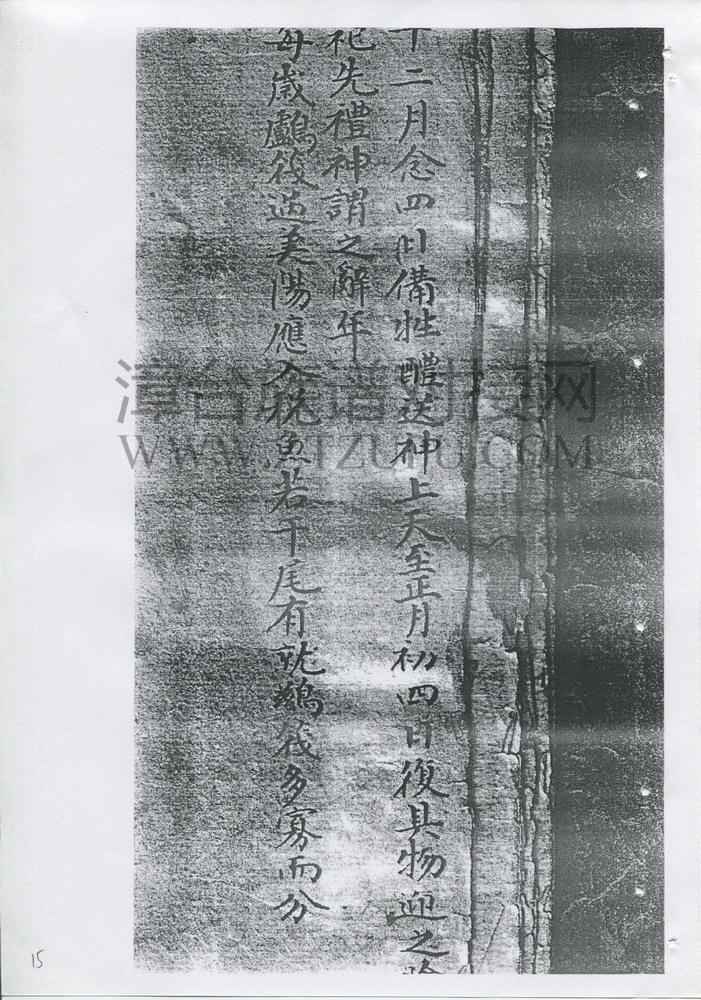 十二月念四日備牲醴送神上天至正月初四日復具物迎之
祀先禮神謂之辭年
每歲鸕筏過美陽應入稅魚若干尾有就鷀筏多寡而分
漳台族谱对接网
WWW.ZTZUPU.COM
15